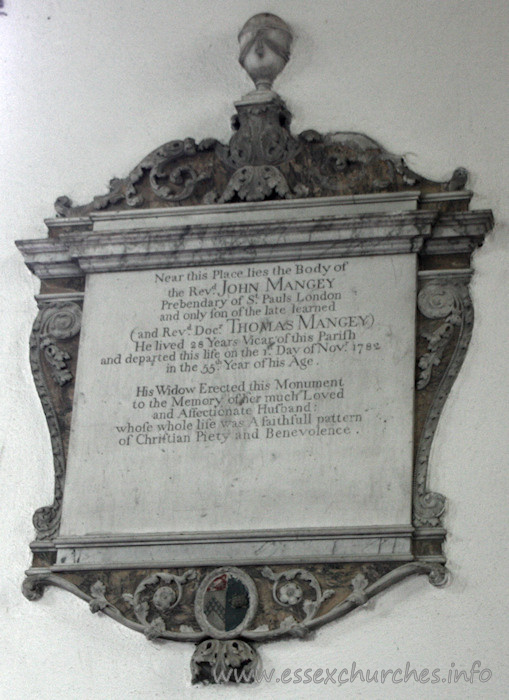 Near this Place lies the Body of
the Rev.d JOHN MANGEY
Prebendary of S.t Pauls London
and only ſon of the late learned
(and Rev.d Doc.r THOMAS MANGEY)
He lived 28 Years Vicar of this Pariſh
and departed this life on the 1.st Day of Nov.r 1782
in the 55.th Year of his Age.
His Widow Erected this Monument
to the Memory of her much Loved
and Affectionate Huſband:
whoſe whole life was A faithfull pattern
of Chriſtian Piety and Benevolence.
www.essexchurches.info